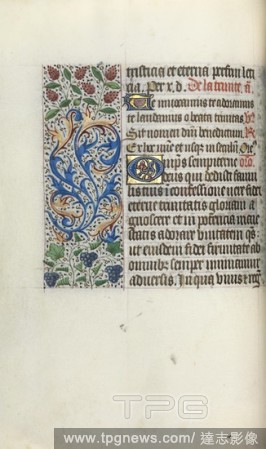 tristicia et eterna perfrui leti
cia. Per x.d. De la trinite. ã.
Te invocamus te adoramus
te laudamus o beata trinitas. V
Sit nomen dñi benedictum. R
Ex hoc nũc et usq; in seculũ. Orõ
Omnips sempiterne oro.
deus qui dedisti famu
lis tuis i confessione vere fidei
eterne trinitatis gloriam a
gnoscere et in potencia maie
statis adorare unitatem qs
ut eiusdem fidei firmitate ab
omnibz semper muniamur
adversis. In qua vivis et reg
TPG
www.tpgnews.com / 達志影像